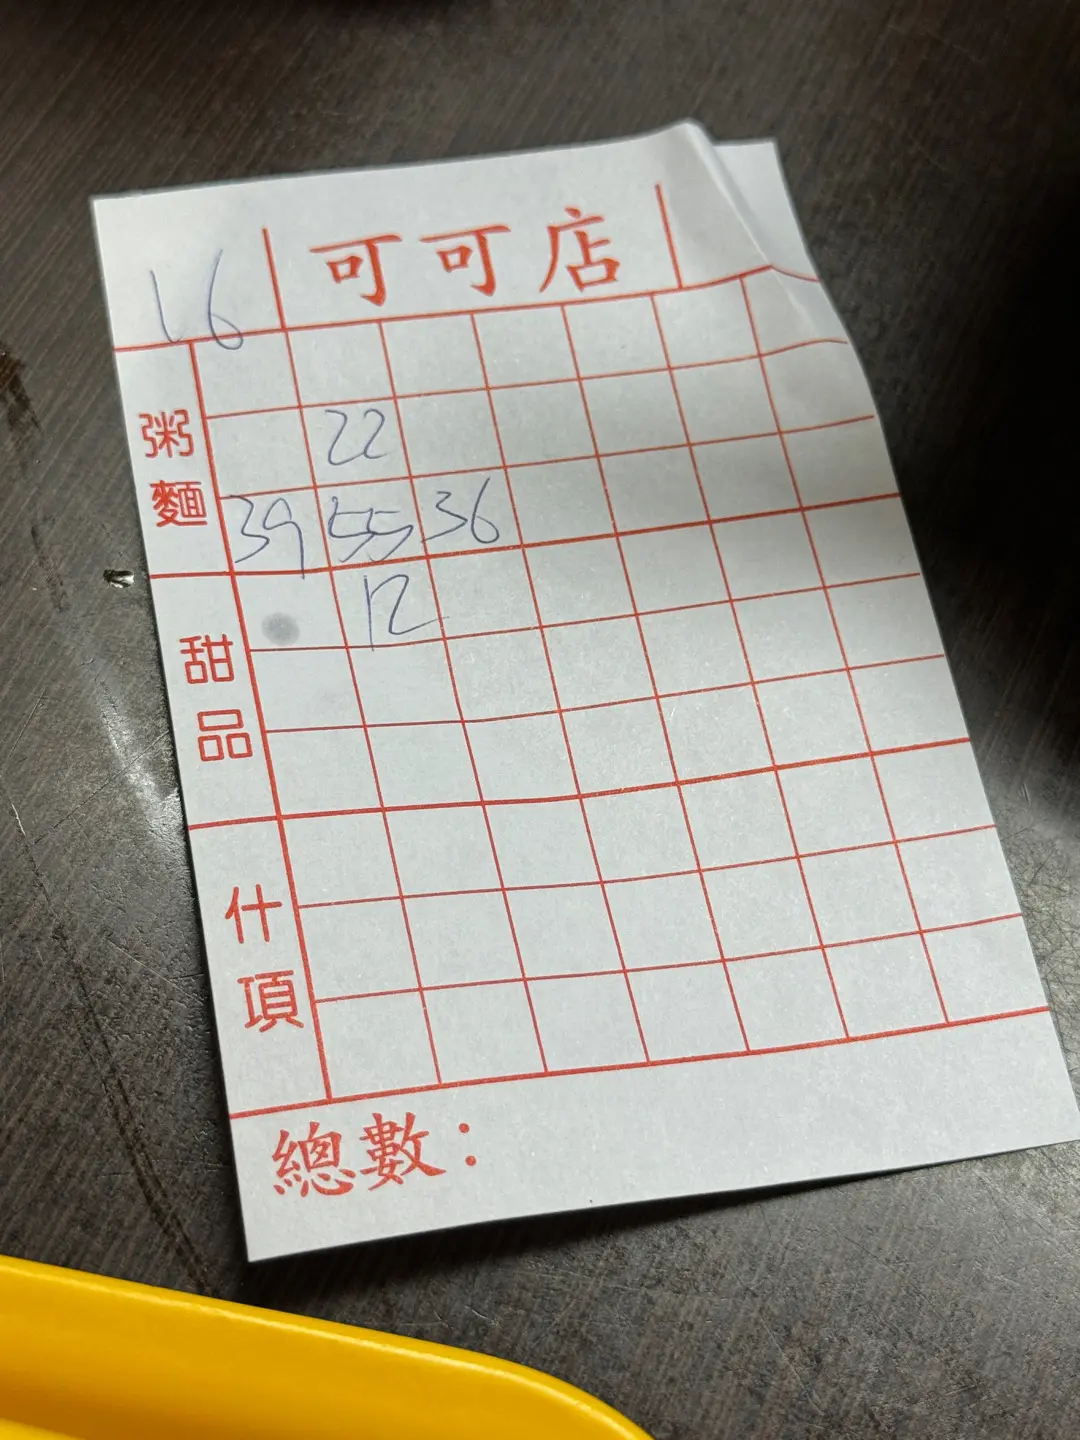 16 可可店
22
粥麵 39 55 36
12
甜品
什項
總數：